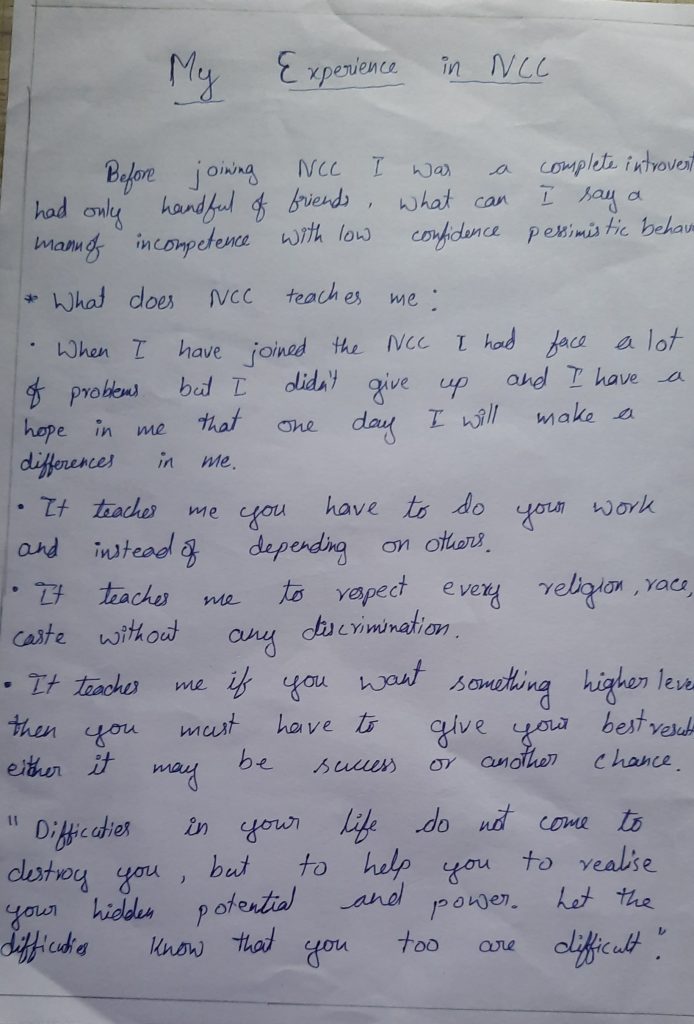 My Experience in NCC
Before joining NCC I was a complete introvert
had only handful of friends, what can I say a
mann of incompetence with low confidence pessimistic behav
* What does NCC teaches me :
• When I have joined the NCC I had face a lot
of problems but I didn't give up and I have a
hope in me that one day I will make a
differences in me.
• It teaches me you have to do your work
and instead of depending on others.
• It teaches me to respect every religion, race,
caste without any discrimination.
• It teaches me if you want something higher leve
then you must have to give your best result
either it may be success or another chance.
" Difficuties in your life do not come to
destroy you, but to help you to realise
your hidden potential and power. Let the
difficuties know that you too are difficult".